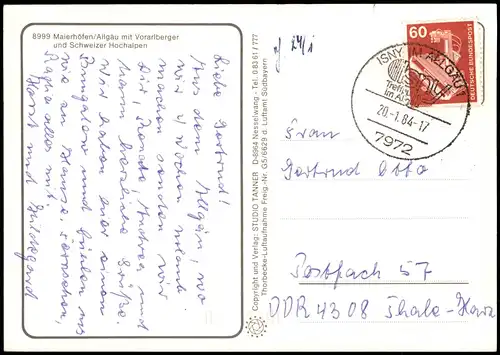 8999 Maierhöfen/Allgäu mit Vorarlberger
und Schweizer Hochalpen
Liebe Gertrud!
Aus dem Allgäu, wo
wir 2 Wochen Urlaub
machen senden wir
Dir, Andrea und
Mann herzliche Grüße.
Wir haben hier einen
Bungalow und fühlen uns
wie zu Hause.
alles mit.
Horst und Hildegard
Copyright und Verlag: STUDIO TANNER D-8964 Nesselwang - Tel. 0 83 61 / 777
Thorbecke-Luftaufnahme Freig.-Nr. G5/6629 d. Luftamt Südbayern
24/1
60
DEUTSCHE BUNDESPOST
ISNY IM ALLGÄU 1
Treffp
im A
20.-1.84-17
7972
Frau
Gertrud Otto
Postfach 57
DDR 4308 Thale-Harz